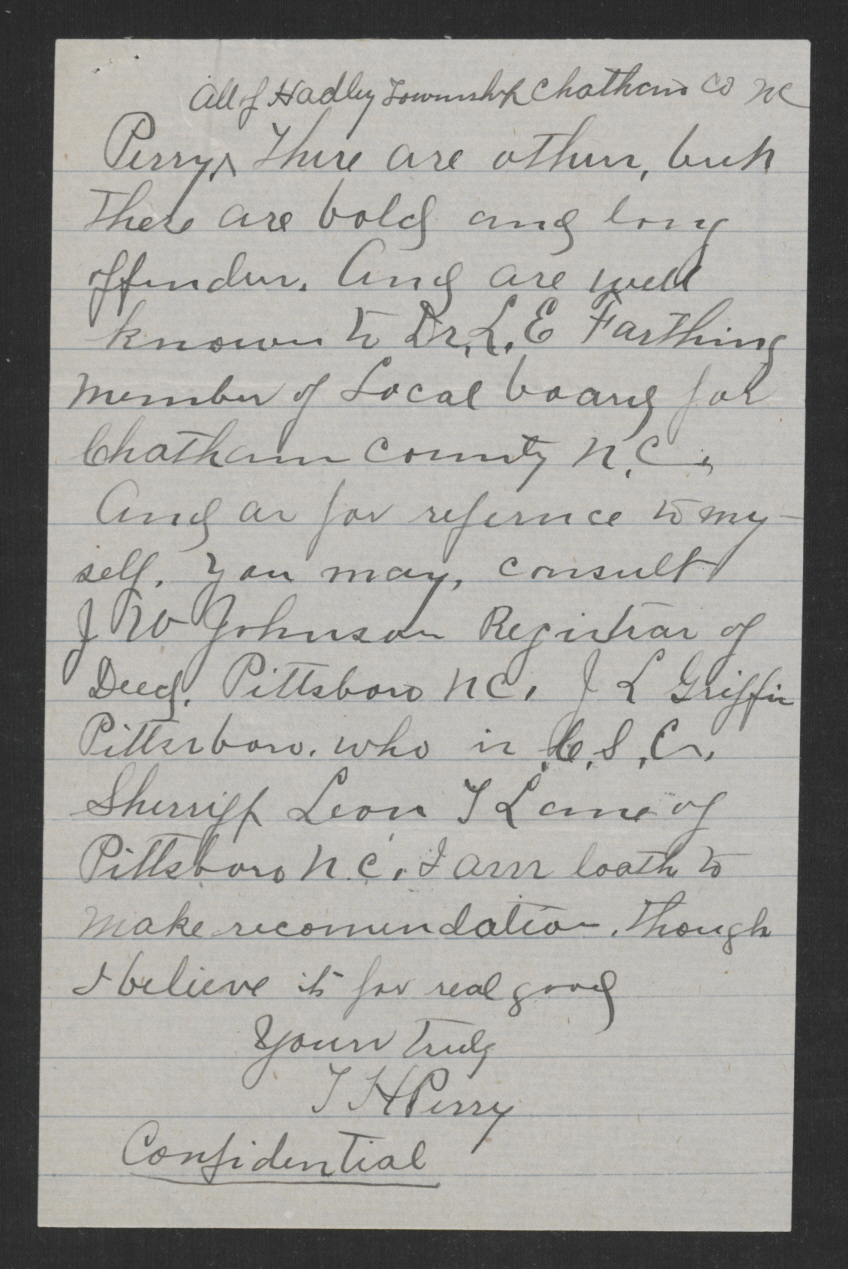 all of Hadley Township Chatham Co NC
Perry, ^ There are others, but
These are bold and long
offenders. And are well
known to Dr, L. E Farthing
member of Local board for
Chatham County N. C.,
And as for refernce to my-
self. You may, consult
J W Johnson Registrar of
Deeds, Pittsboro NC, J L Griffin
Pittsrboro. who is C. S. C.,
Sherriff Leon T Lane of
Pittsboro N. C. I am loath to
make recomendation. Though
I believe its for real good
Yours Truly
T H Perry
Confidential